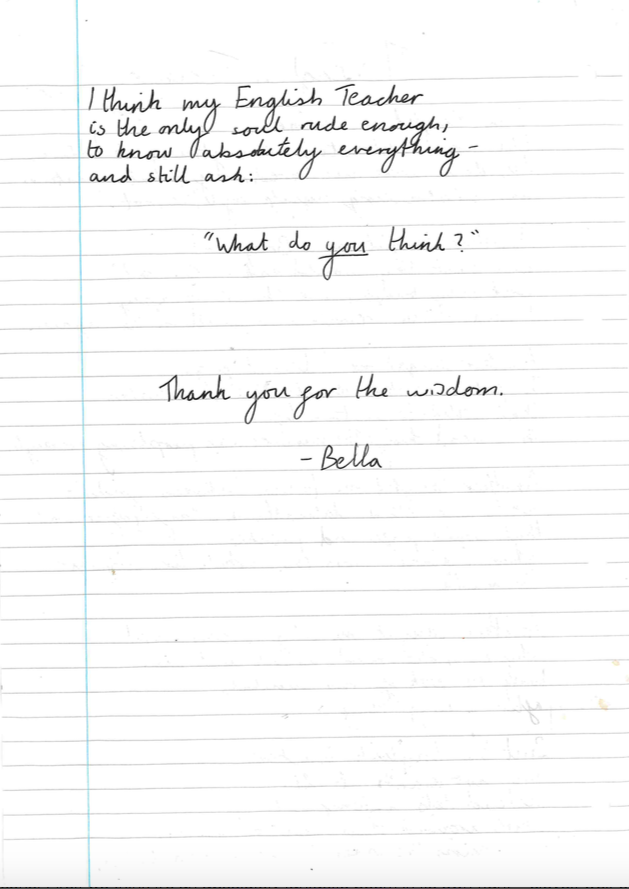 I think my English Teacher
is the only soul rude enough,
to know absolutely everything -
and still ask:
"What do you think?"
Thank you for the wisdom.
- Bella